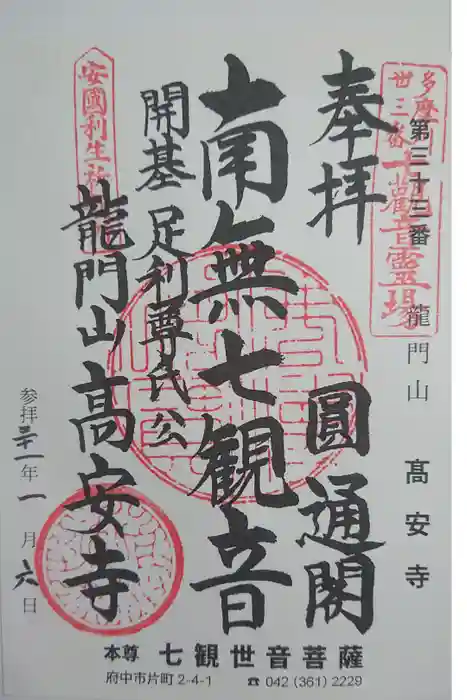 多摩
卅三番
十一観音霊場
第三十三番 龍門山 髙安寺
奉拝 圓通閣
南無七観音
開基 足利尊氏公
安國利生
龍門山高安寺
参拝 三十一年 一月 六日
本尊 七観世音菩薩
府中市片町 2-4-1 ☎ 042 (361) 2229